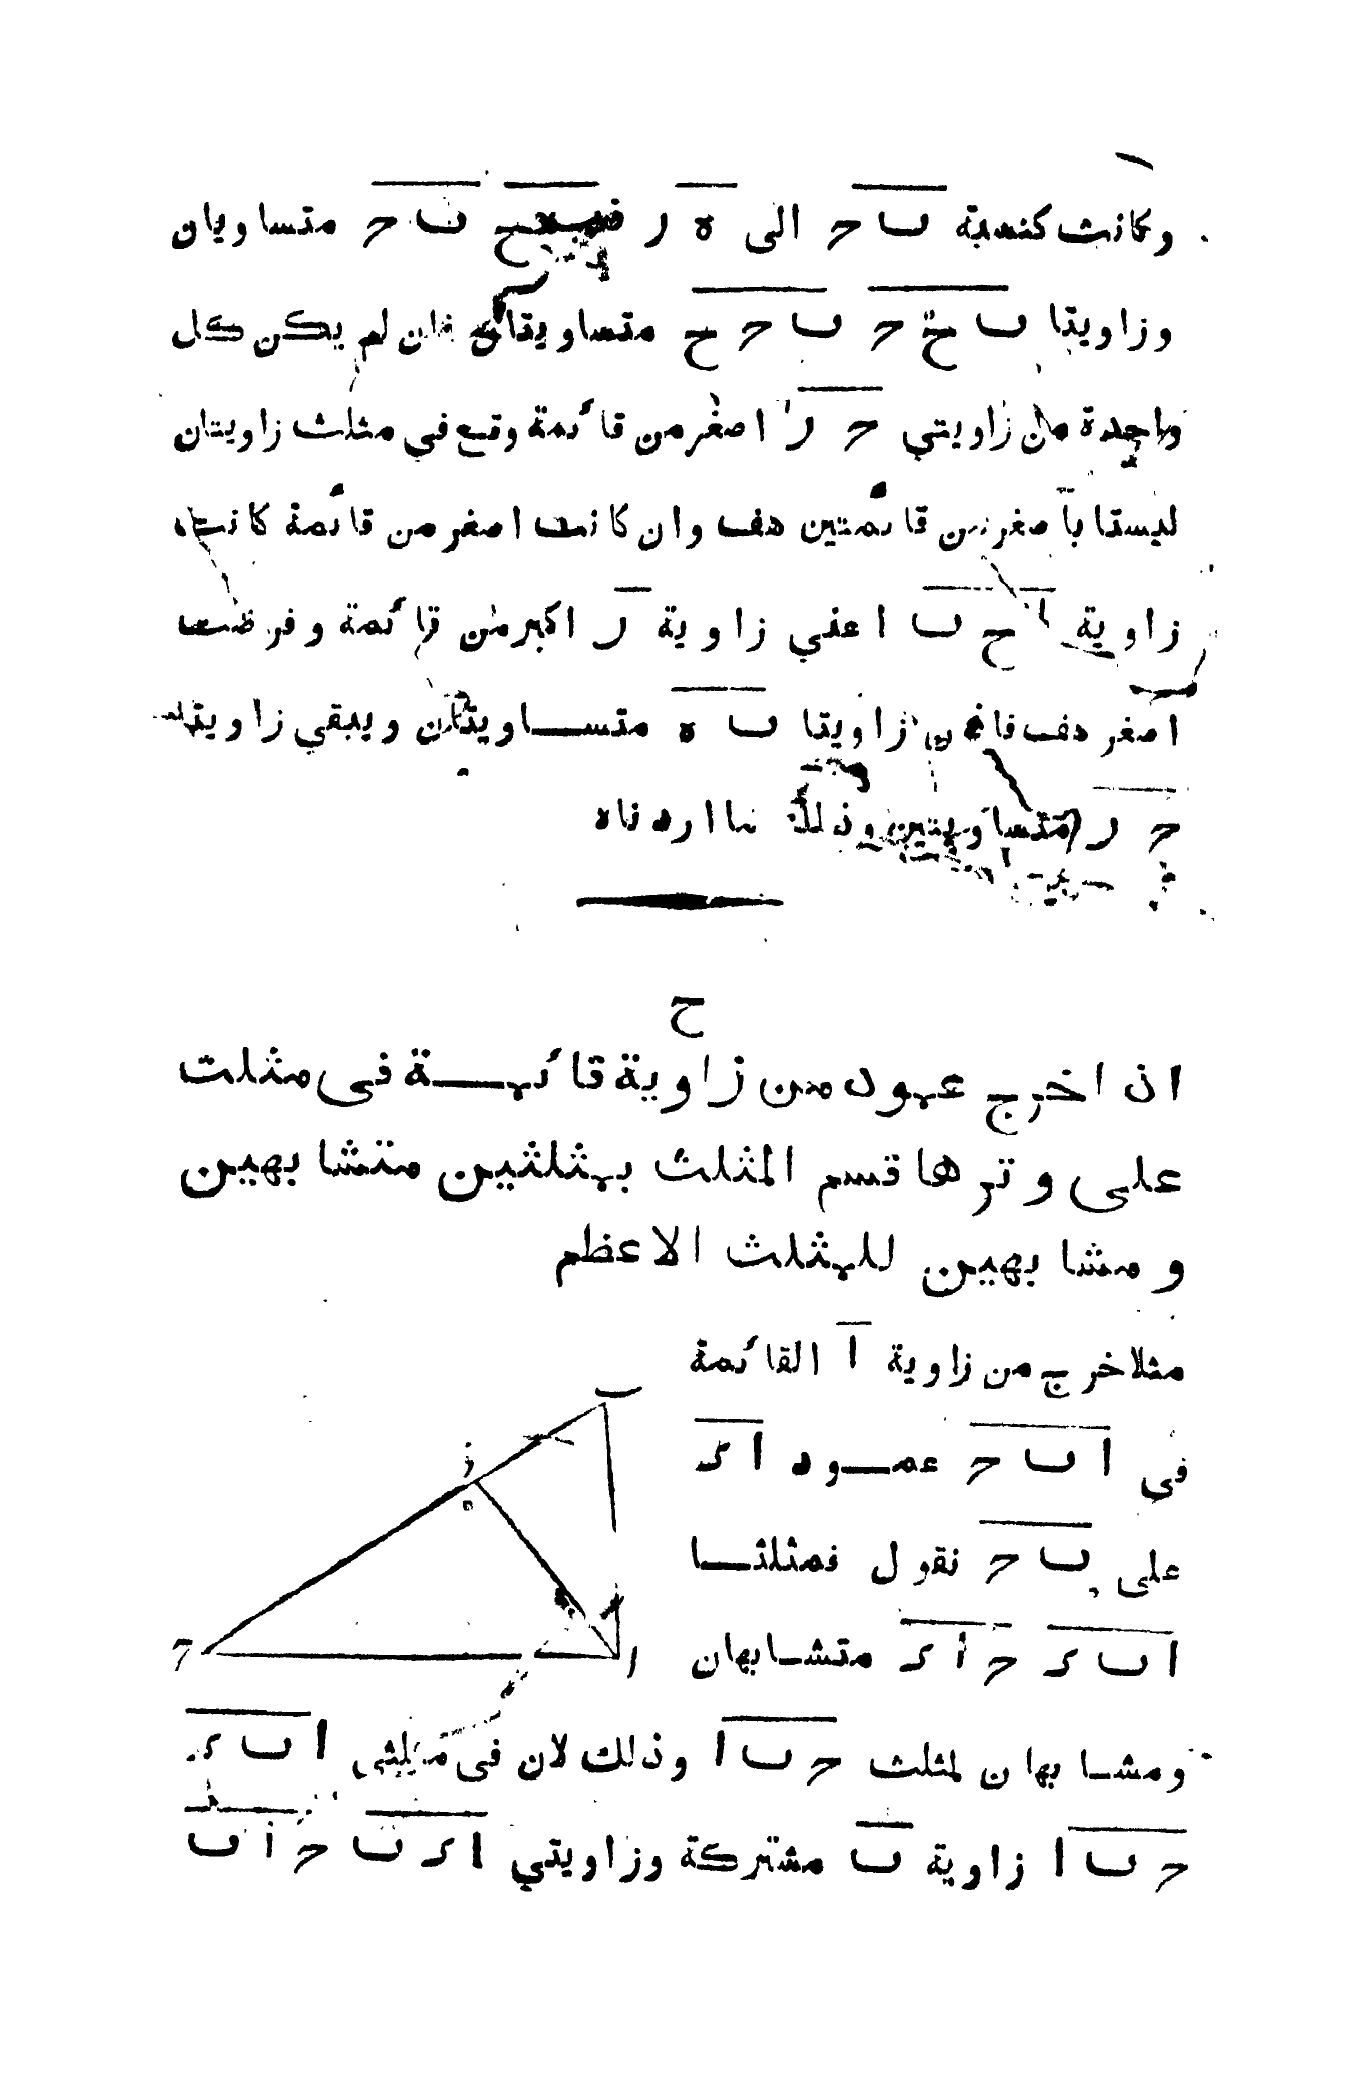 وكانت كنسبة ب ح الى ه ر ح ب ح متساويان
وزاويتا ب ح ح ب ح ح متساويتان فان لم يكن كل
واحدة من زاويتي ح ر اصغر من قائمة وقع في مثلث زاويتان
ليستا باصغر من قائمتين هف وان كانت اصغر من قائمة كانت
زاوية ا ح ب اعني زاوية ر اكبر من قائمة وفرضت
اصغر هف فاذن زاويتا ب ه متساويتان ويبقي زاويتا
ح ر متساويتين وذلك ما اردناه
ح
ان اخرج عمود من زاوية قائمة فى مثلث
على وترها قسم المثلث بمثلثين متشابهين
ومشابهين للمثلث الاعظم
مثلا خرج من زاوية ا القائمة
فى ا ب ح عمود ا د
على ب ح نقول فمثلثا
ا ب د ح ا د متشابهان
ومشابهان لمثلث ح ب ا وذلك لان فى مثلثى ا ب د
ح ب ا زاوية ب مشتركة وزاويتي ا د ب ح ا ب
ب
ز
ح
ا